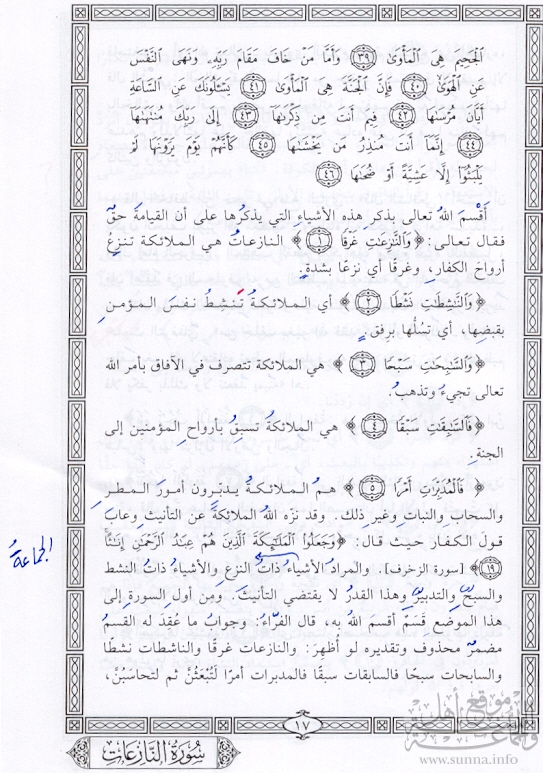 الْجَحِيمَ هِيَ الْمَأْوَىٰ ﴿٣٩﴾ وَأَمَّا مَنْ خَافَ مَقَامَ رَبِّهِ وَنَهَى النَّفْسَ
عَنِ الْهَوَىٰ ﴿٤٠﴾ فَإِنَّ الْجَنَّةَ هِيَ الْمَأْوَىٰ ﴿٤١﴾ يَسْـَٔلُونَكَ عَنِ السَّاعَةِ
أَيَّانَ مُرْسَىٰهَا ﴿٤٢﴾ فِيمَ أَنتَ مِن ذِكْرَىٰهَا ﴿٤٣﴾ إِلَىٰ رَبِّكَ مُنتَهَىٰهَا
﴿٤٤﴾ إِنَّمَا أَنتَ مُنذِرُ مَن يَخْشَىٰهَا ﴿٤٥﴾ كَأَنَّهُمْ يَوْمَ يَرَوْنَهَا لَمْ
يَلْبَثُوا إِلَّا عَشِيَّةً أَوْ ضُحَىٰهَا ﴿٤٦﴾
أَقْسَمَ اللهُ تعالى بذكرِ هذه الأشياءِ التي يذكرُها على أن القيامةَ حقٌّ
فقال تعالى: ﴿وَالنَّٰزِعَٰتِ غَرْقًا ﴿١﴾﴾ النازعاتُ هي الملائكة تنزعُ
أرواحَ الكفارِ، وغرقًا أي نزعًا بشدةٍ.
﴿وَالنَّٰشِطَٰتِ نَشْطًا ﴿٢﴾﴾ أي الملائكةُ تَنشِطُ نفسَ المؤمنِ
بقبضِها، أي تسُلُّها برِفقٍ.
﴿وَالسَّٰبِحَٰتِ سَبْحًا ﴿٣﴾﴾ هي الملائكة تتصرف في الآفاقِ بأمر الله
تعالى تجيءُ وتذهبُ.
﴿فَالسَّٰبِقَٰتِ سَبْقًا ﴿٤﴾﴾ هي الملائكةُ تسبِقُ بأرواحِ المؤمنين إلى
الجنةِ.
﴿فَالْمُدَبِّرَٰتِ أَمْرًا ﴿٥﴾﴾ هم الملائكةُ يدبّرون أمورَ المطرِ
والسحابِ والنباتِ وغيرِ ذلك. وقد نزّه اللهُ الملائكةَ عن التأنيثِ وعابَ
قولَ الكفارِ حيث قال: ﴿وَجَعَلُوا الْمَلَٰٓئِكَةَ الَّذِينَ هُمْ عِبَٰدُ الرَّحْمَٰنِ إِنَٰثًا
﴿١٩﴾ [سورة الزخرف]. والمرادُ الأشياءُ ذاتُ النزعِ والأشياءُ ذاتُ النشط
الجماعةُ
والسبحِ والتدبيرِ وهذا القدرُ لا يقتضي التأنيثَ. ومِن أولِ السورة إلى
هذا الموضعِ قسَمٌ أقسمَ اللهُ به، قال الفرَّاءُ: وجوابُ ما عُقِدَ له القسمُ
مضمرٌ محذوف وتقديره لو أُظهِرَ: والنازعات غرقًا والناشطات نشطًا
والسابحات سبحًا فالسابقات سبقًا فالمدبرات أمرًا لَتُبْعَثُنَّ ثم لتحاسَبُنَّ،
١٧
سُورَةُ النَّازِعَاتِ
موقع أهل السنة والجماعة
www.sunna.info